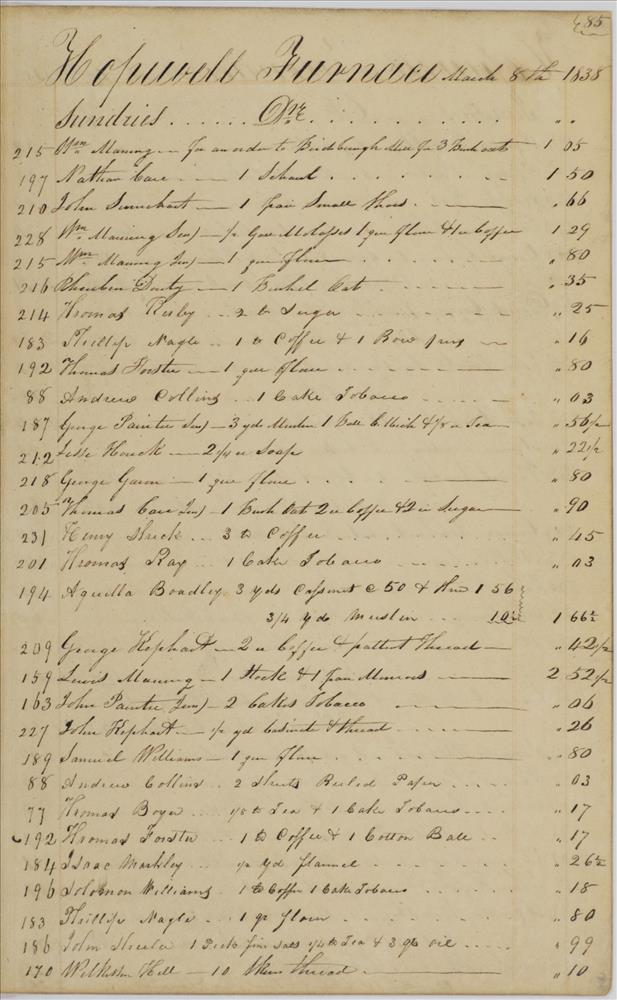 485
Hopewell Furnace March 8th 1838
Sundries ...... Drs. .......... " "
215 Wm Manning — for an order to 3 Bush oats 1 05
197 Nathan Care ... — 1 Schaul ........ 1 50
210 John — 1 pair Small Shoes .. — " 66
228 Wm Manning Sen) — 1/2 Gall Molasses 1 qur flour & 1 lb Coffee 1 29
215 Wm Manning Jun) — 1 qur flour ...... " 80
216 Rheuben Douty — 1 Bushel Oat ...... " 35
214 Thomas Kirby ... 2 lb Sugar ...... — " 25
183 Phillip Nagle .. 1 lb Coffee & 1 Row pins — " 16
192 Thomas Forster — 1 qur flour ........ — " 80
88 Andrew Collins ... 1 Cake Tobacco ..... — " 03
187 George Painter Jun) — 3 yds Muslin 1 & 1/8 lb Tea — " 56 1/2
212 Jesse Houck — 2 1/4 lb Soap " 22 1/2
218 George — 1 qur flour ...... — " 80
205 Thomas Care Jun) — 1 Bush Oat 2 lb Coffee & 2 lb Sugar — " 90
231 Henry Shick ... 3 lb Coffee .......... " 45
201 Thomas Ray ... 1 Cake Tobacco ...... — " 03
194 Aquella Boadley 3 yds Cassinet @ 50 & 1 56
3/4 yd Muslin .... 10 1/2 1 66 1/2
209 George Hephart — 2 lb Coffee & pattent thread — " 42 1/2
159 Lewis Manning — 1 Stock & 1 pair — 2 52 1/2
163 John Painter Jun) — 2 Cakes Tobacco — " 06
227 John Hephart — 1/2 yd & thread ...... — " 26
189 Samuel Williams — 1 qur flour ...... — " 80
88 Andrew Collins .. 2 Sheets Ruled Paper .... — " 03
77 Thomas Boyer .... 1/8 lb Tea & 1 Cake Tobacco .... " 17
192 Thomas Forster .... 1 lb Coffee & 1 Cotton Ball .. " 17
184 Isaac Markley .... 1/2 yd flannel ........ " 26 1/2
196 Solomon Williams . 1 lb Coffee 1 Cake Tobacco ..... " 18
183 Phillip Nagle ... 1 qr flour ........ " 80
186 John 1 Peck fine Salt 1/4 lb Tea & 3 gls oil ..... " 99
170 Hill — 10 Skein thread — " 10